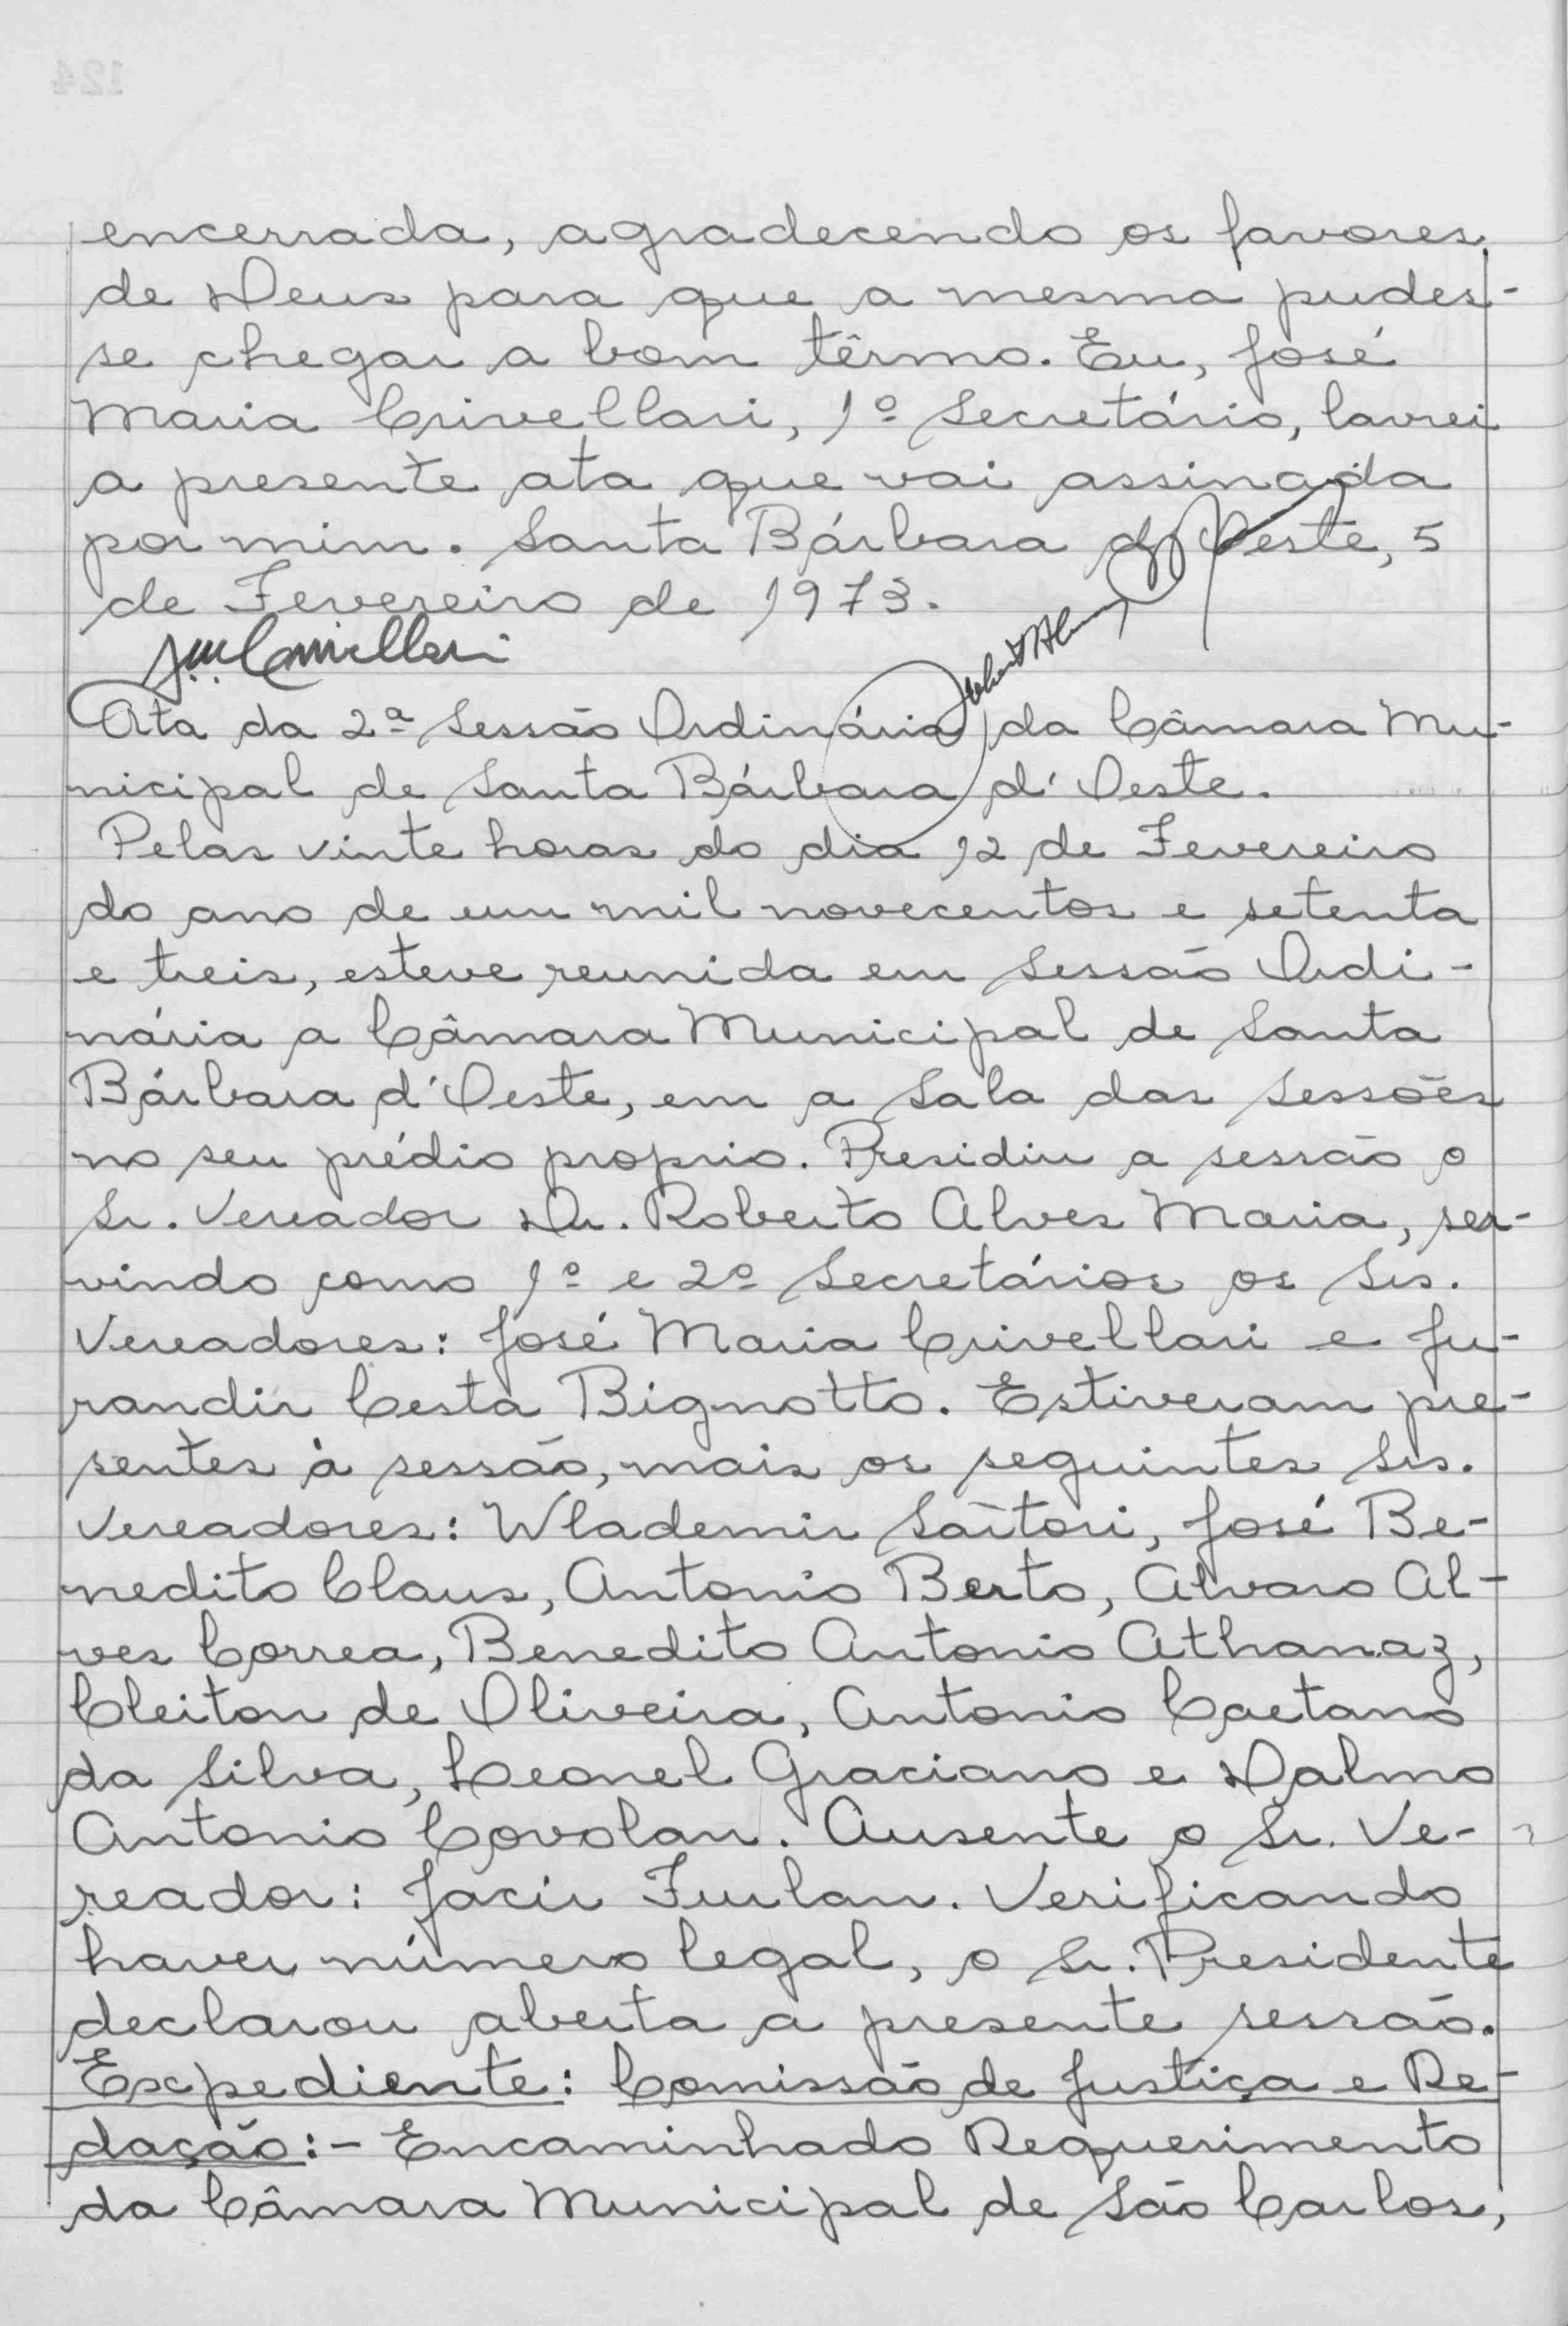 encerrada, agradecendo os favores
de Deus para que a mesma pudes-
se chegar a bom têrmo. Eu, José
Maria Crivellari, 1º Secretário, lavrei
a presente ata que vai assinada
por mim. Santa Bárbara d'Oeste, 5
de Fevereiro de 1973.
Ata da 2ª Sessão Ordinária da Câmara Mu-
nicipal de Santa Bárbara d'Oeste.
Pelas vinte horas do dia 12 de Fevereiro
do ano de um mil novecentos e setenta
e treis, esteve reunida em Sessão Ordi-
nária a Câmara Municipal de Santa
Bárbara d'Oeste, em a Sala das Sessões
no seu prédio proprio. Presidiu a sessão o
Sr. Vereador Dr. Roberto Alves Maria, ser-
vindo como 1º e 2º Secretários os Srs.
Vereadores: José Maria Crivellari e Ju-
randir Cesta Bignotto. Estiveram pre-
sentes à sessão, mais os seguintes Srs.
Vereadores: Wlademir Sartori, José Be-
nedito Claus, Antonio Berto, Alvaro Al-
ves Correa, Benedito Antonio Athanaz,
Cleiton de Oliveira, Antonio Caetano
da Silva, Leonel Graciano e Dalmo
Antonio Covolan. Ausente o Sr. Ve-
reador: Jacir Furlan. Verificando
haver número legal, o Sr. Presidente
declarou aberta a presente sessão.
Expediente: Comissão de Justiça e Re-
dação:- Encaminhado Requerimento
da Câmara Municipal de São Carlos,